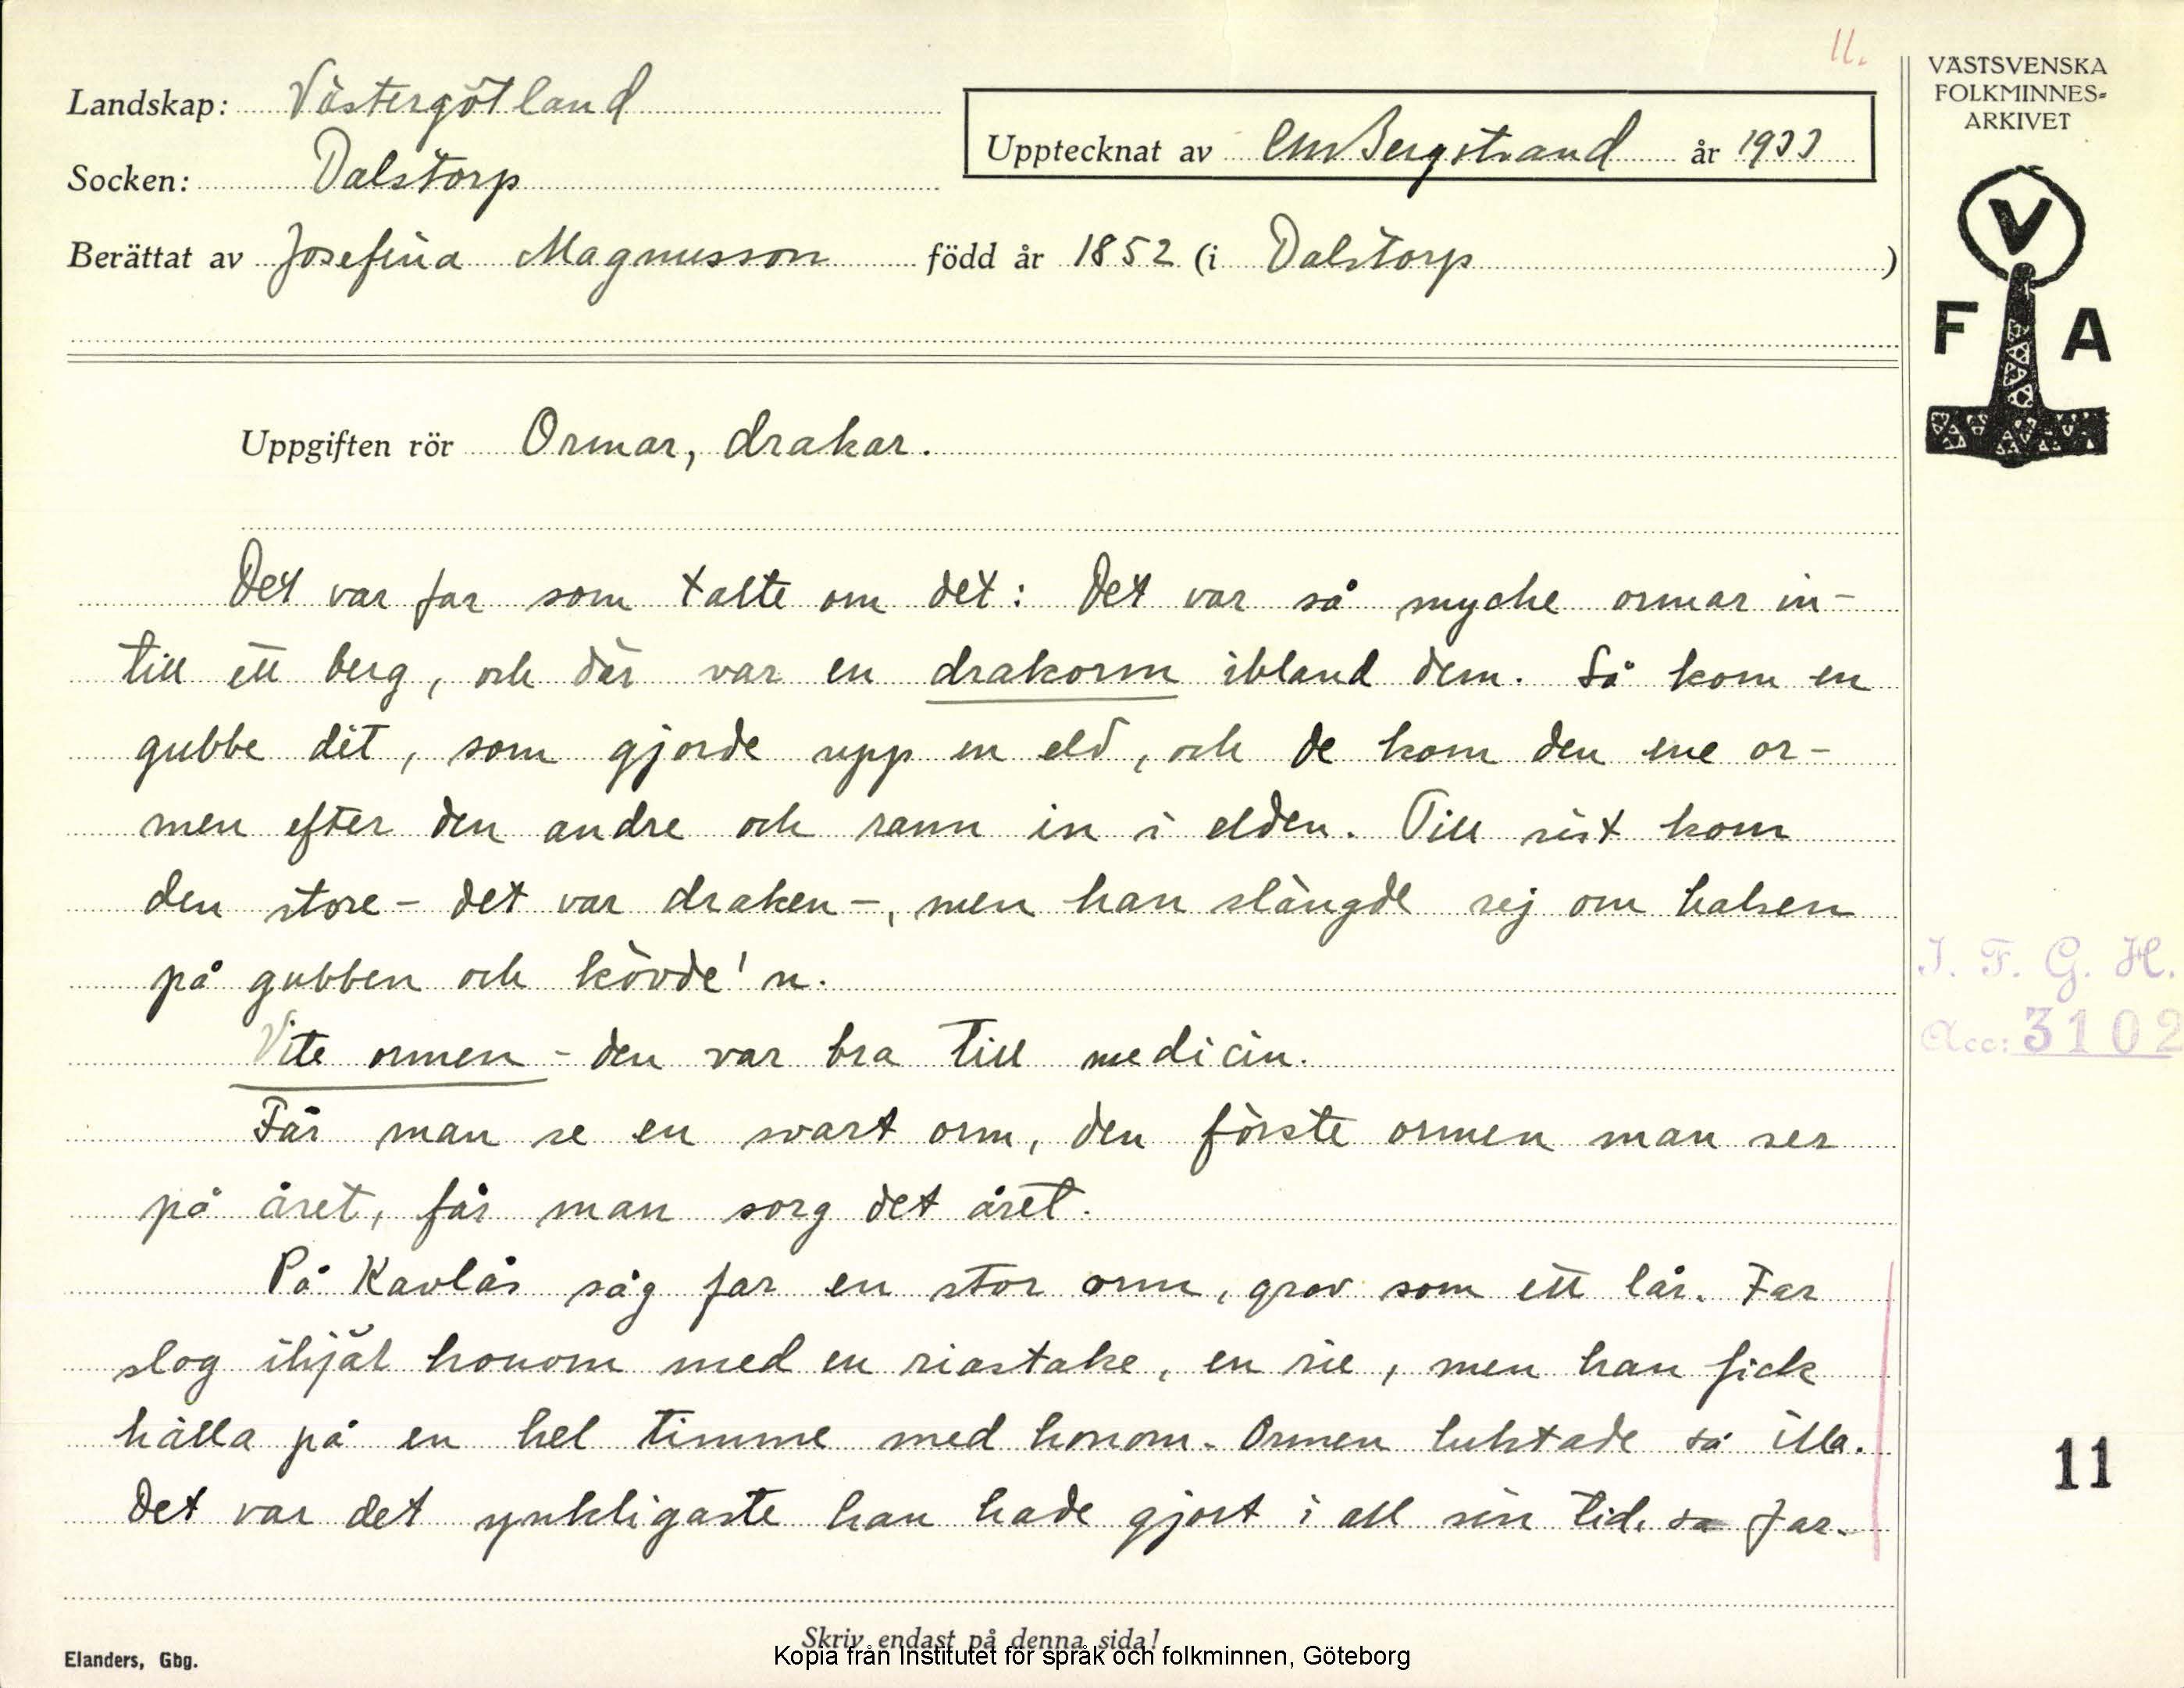 11.
Landskap: Västergötland
Upptecknat av CM Bergstrand år 1933
Socken: Dalstorp
Berättat av Josefina Magnusson född år 1852 (i Dalstorp)
Uppgiften rör Ormar, drakar.
Det var far som talte om det: Det var så myche ormar in-
till ett berg, och där var en drakorm ibland dem. Så kom en
gubbe dit, som gjorde upp en eld, och de kom den ene or-
men efter den andre och rann in i elden. Till sist kom
den store - det var draken -, men han slängde sej om halsen
på gubben och kövde'n.
Vite ormen - den var bra till medicin.
Får man se en svart orm, den förste ormen man ser
på året, får man sorg det året.
På Kavlås såg far en stor orm, grov som ett lår. Far
slog ihjäl honom med en riastake, en rie, men han fick
hålla på en hel timme med honom. Ormen luktade så illa.
Det var det ynkligaste han hade gjort i all sin tid, sa far.
Skriv endast på denna sida!
Elanders, Gbg.
Kopia från Institutet för språk och folkminnen, Göteborg
VÄSTSVENSKA
FOLKMINNES-
ARKIVET
V
F A
I. F. G. H.
Acc: 3102
11